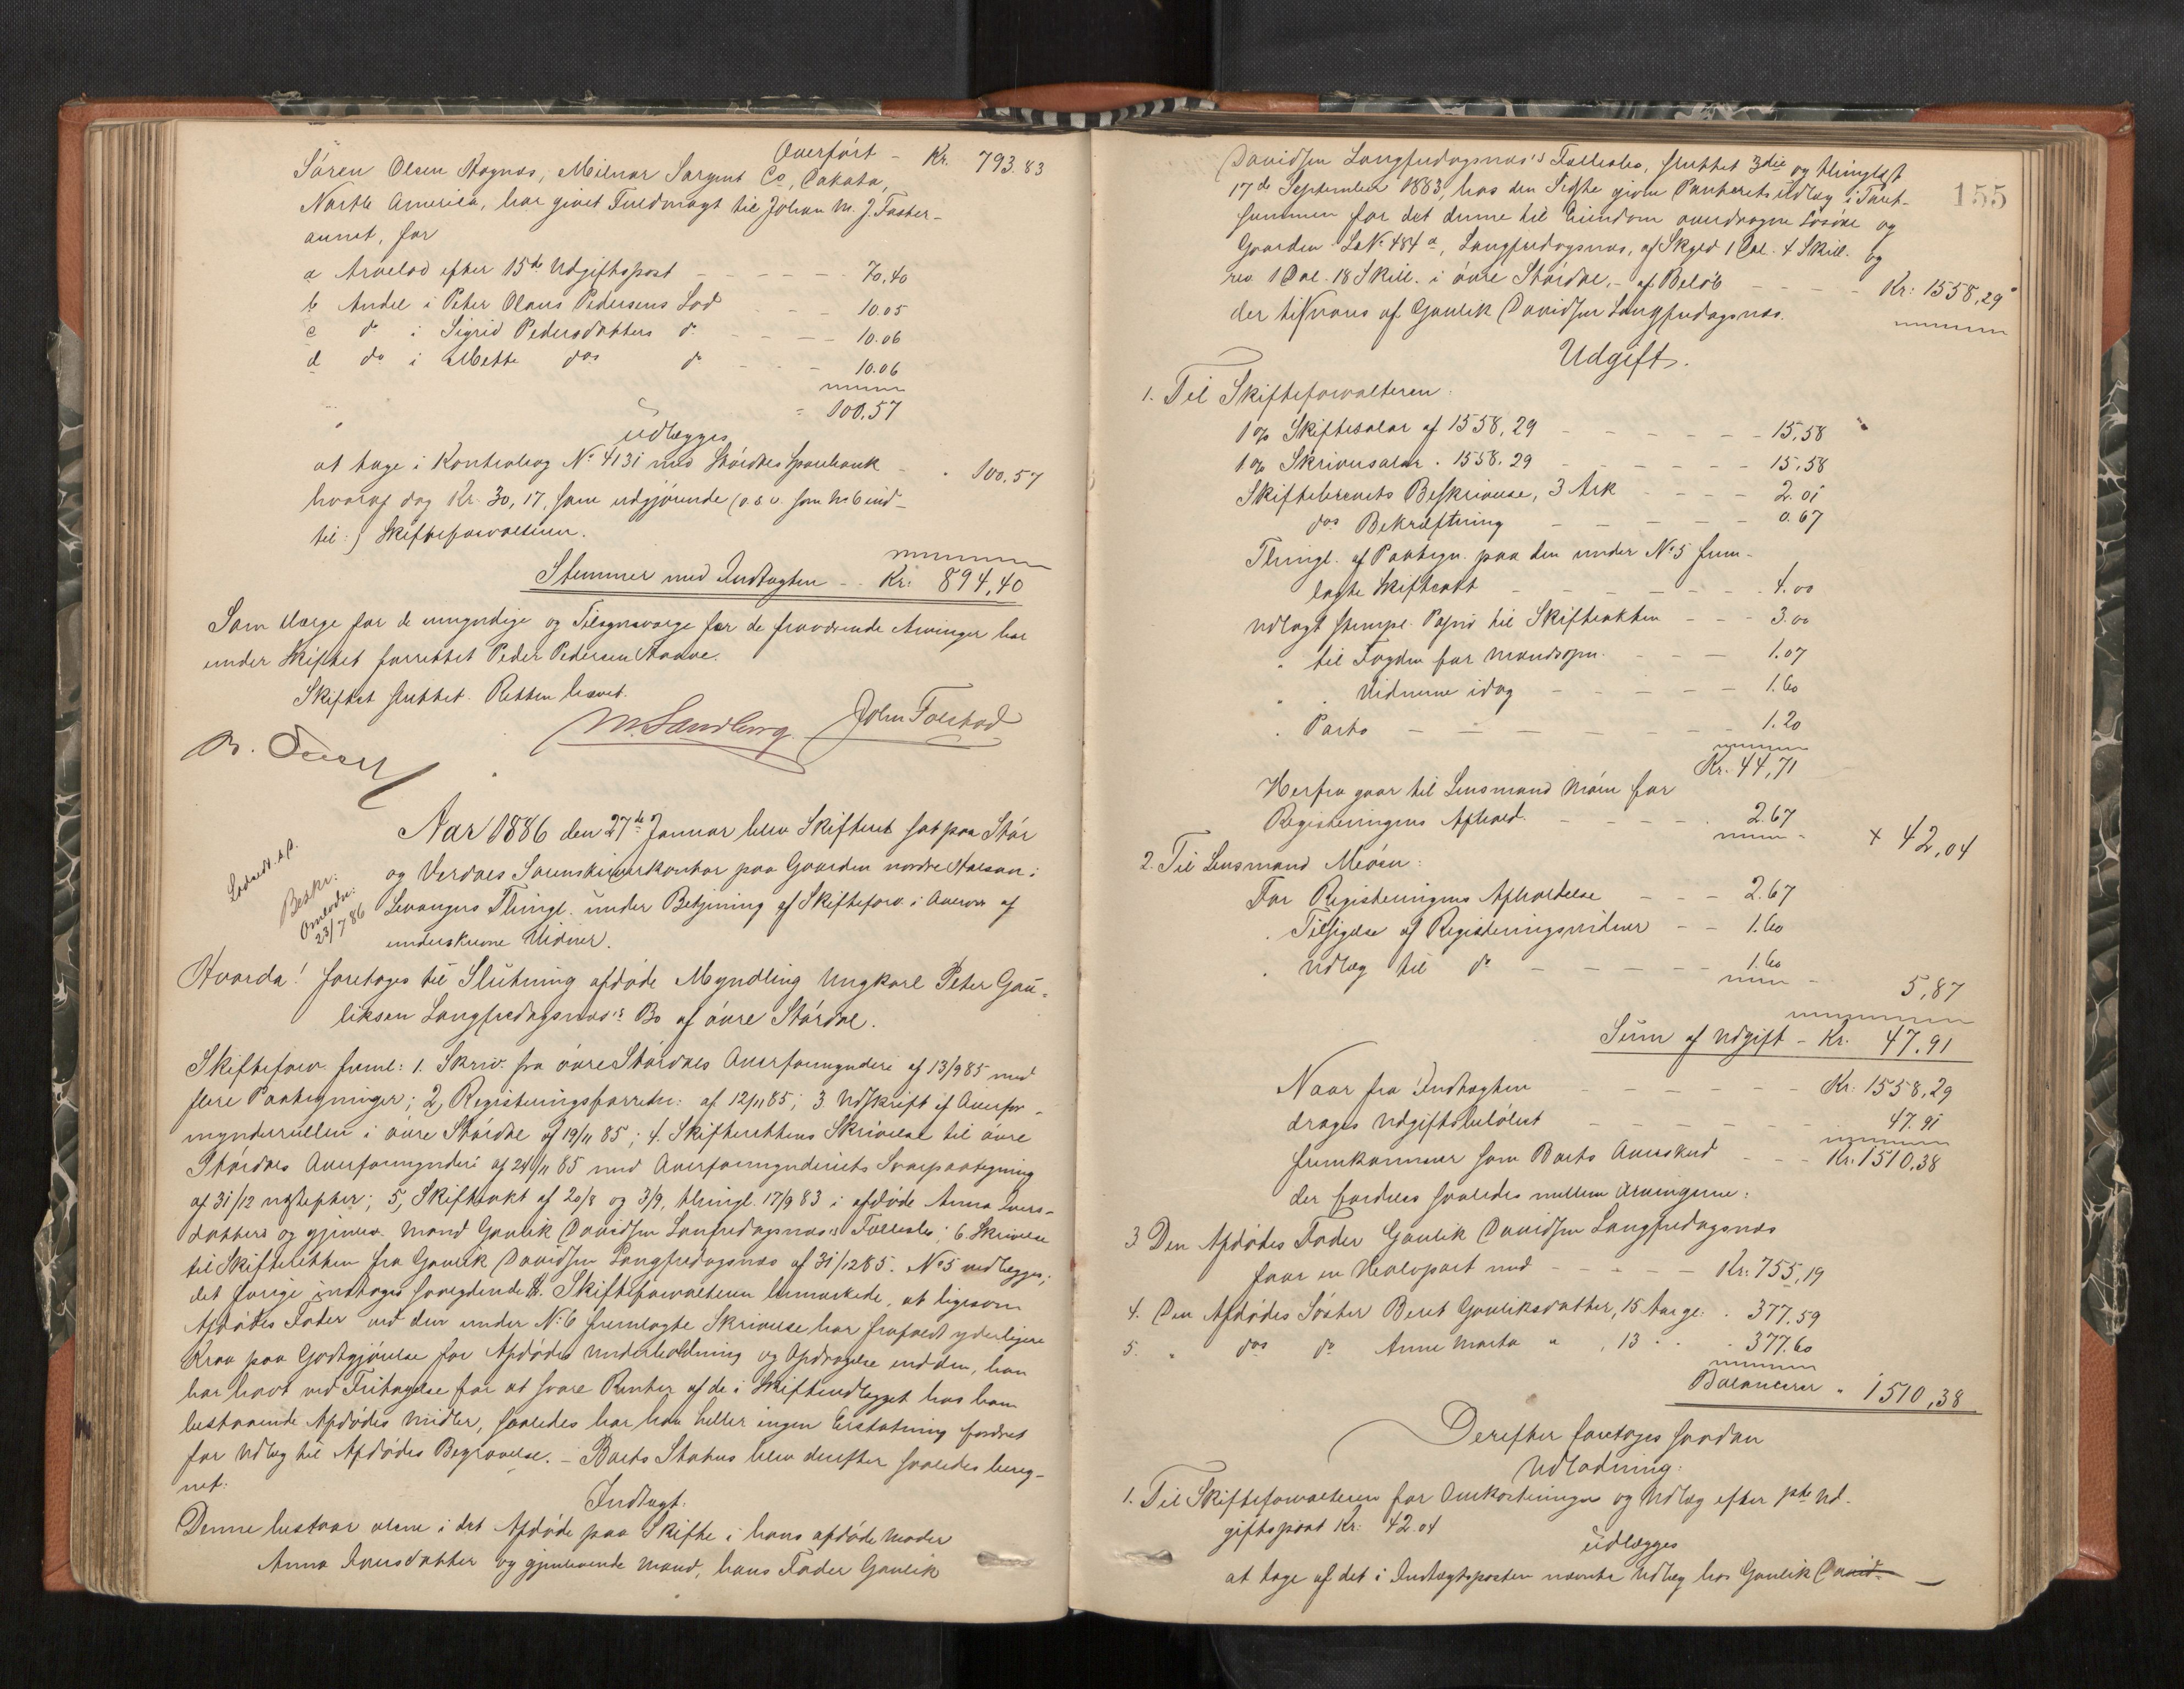 Overført - Kr. 793.83
Søren Olsen Rognes, Milnor Sargent Co, Dakota,
North America, har givet Fuldmagt til Johan M. J. Faster-
aunet, for
a Arvelod efter 15de Udgiftspost - - - - - 70,40
b Andel i Peter Olaus Pedersens Lod - - 10.05
c do i Sigrid Pedersdatters do - - - - 10.06
d do i Mette das do - - - 10.06
= 100.57
udlægges
at tage i Kontrabog No 4131 med Størdals Sparebank - " 100.57
hvoraf dog Kr. 30,17, som udgjørende (o.s.v. som No 6 ind-
til:) Skifteforvalteren.
Stemmer med Indtægten - - Kr. 894,40
Som Værge for de umyndige og Tilsynsværge for de fraværende Arvinger har
under Skiftet forrettet Peder Pedersen
Skiftet sluttet. Retten hævet.
M. Sandberg. John Folstad
Aar 1886 den 27de Januar blev Skifteret sat paa Stør
og Verdals Sorenskriverkontor paa Gaarden nordre Halsan i
Levangers Thingl. under Betjening af Skifteforv. i Overvær af
underskrevne Vidner.
Beskr:
23/7 86
Hvorda! foretoges til Slutning afdøde Myndling Ungkarl Peter Gau-
liksen Langfredagsnæs's Bo af øvre Størdal.
Skifteforv. freml: 1. Skriv. fra øvre Størdals Overformynderi af 13/9 85 med
flere Paategninger; 2, Registeringsforretn: af 12/11 85; 3 Udskrift af Overfor-
mynderrullen i øvre Størdal af 19/11 85; 4. Skifterettens Skrivelse til øvre
Størdals Overformynderi af 24/11 85 med Overformynderiets Svarpaategning
af 31/12 næstefter; 5, Skifteakt af 20/8 og 3/9, thingl. 17/9 83 i afdøde Anna Ivers-
datters og gjenlev. Mand Gaulik Davidsen Lanfredagsnæs's Fællesbo; 6. Skrivelse
til Skifteretten fra Gaulik Davidsen Langfredagsnæs af 31/12 85. No 5 vedlægges;
det øvrige indtages Skifteforvalteren bemærkede, at ligesom
Afdødes Fader ved den under No 6 fremlagte Skrivelse har frafaldt yderligere
Krav paa Godtgjørelse for Afdødes Underholdning og Opdragelse end den, han
har havt ved Fritagelse for at svare Renter af de i Skifteudlægget hos ham
bestaaende Afdødes Midler, saaledes har han heller ingen Erstatning fordret
for Udlæg til Afdødes Begravelse. - Boets Status blev derefter saaledes bereg-
net:
Indtægt:
Denne bestaar alene i det Afdøde paa Skifte i hans afdøde Moder
Anna Iversdatter og gjenlevende Mand, hans Fader Gaulik
155
Davidsen Langfredagsnæs's Fællesbo, sluttet 3die og thinglæst
17de September 1883, hos den Sidste givne Panterets udlæg i Taxt-
summen for det denne til Eiendom overdragne Løsøre og
Gaarden LNo 484 a, Langfredagsnæs, af Skyld 1 Dal. 4 Skill. og
rev 1 Dal. 18 Skill. i øvre Størdal, - af Beløb - - - - Kr: 1558,29
der tilsvares af Gaulik Davidsen Langfredagsnæs.
Udgift.
1. Til Skifteforvalteren:
1 % Skiftesalær af 1558,29 - - - - - - 15,58
1 % Skriversalær " 1558.29 - - - - - - 15,58
Skiftebrevets Beskrivelse, 3 Ark - - - - 2.01
das Bekræftning - - - - - 0.67
Thingl. af Paategn. paa den under No 5 frem-
lagte Skifteakt - - - - - - - 4.00
Udlagt stempl. Papir til Skifteakten - - - 3.00
" til Fogden for Mandsopn. - - - - 1.07
" " Vidnerne idag - - - - - 1.60
" Porto - - - - - - - 1.20
Kr. 44,71
Herfra gaar til Lensmand Møen for
Registeringens Afhold. - - - - - 2.67
+ 42,04
2. Til Lensmand Møen:
For Registeringens Afholdelse - - - 2.67
" Tilsigelse af Registeringsvidner - - 1.60
" Udlæg til do - - - - - 1.60
5,87
Sum af Udgift - Kr. 47.91
Naar fra Indtægten - - - - - - Kr. 1558,29
drages Udgiftsbeløbet - - - - - - 47.91
fremkommer som Boets Overskud - - - Kr. 1510.38
der fordeles saaledes mellem Arvingerne:
3 Den Afdødes Fader Gaulik Davidsen Langfredagsnæs
faar en Halvpart med - - - - - Kr. 755,19
4. Den Afdødes Søster Beret Gauliksdatter, 15 Aar gl: " 377.59
5. " das do Anne Marta " , 13 " " 377.60
Balancerer " 1510,38
Derefter foretoges saadan
Udlodning:
1. Til Skifteforvalteren for Omkostninger og Udlæg efter 1ste Ud-
giftspost Kr. 42.04
udlægges
at tage af det i Indtægtsposten nævnte Udlæg hos Gaulik David-